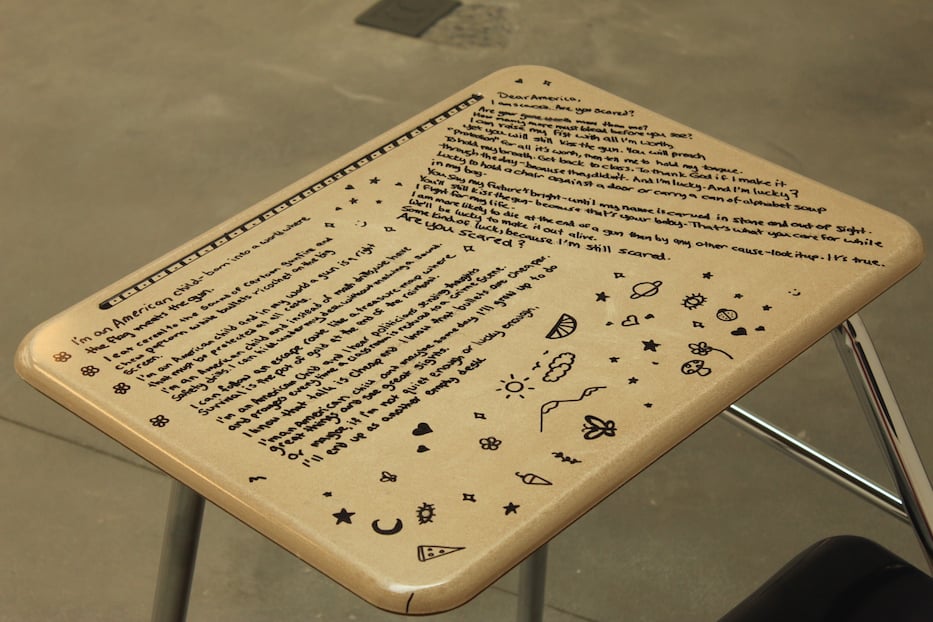 Dear America,
I am scared. Are you scared?
Are your goosebumps more than me?
How many more must bleed before you see?
I can raise my fist with all I'm worth,
yet you will still kiss the gun. You will preach
"protection" for all it's worth, then tell me to hold my tongue.
To hold my breath. Get back to class. To thank God if I make it
through the day-because they didn't. And I'm lucky. And I'm lucky?
Lucky to hold a chair against a door or carry a can of alphabet soup
in my bag.
You say my future's bright-until my name is carved in stone and out of sight.
You'll still kiss the gun-because that's your baby. That's what you care for while
I fight for my life.
I am more likely to die at the end of a gun than by any other cause-look it up. It's true.
We'll be lucky to make it out alive.
Some kind of luck, because I'm still scared.
Are you scared?
I'm an American child born into a world where
the flag means the gun.
I can run to the sound of cartoon gunfire and
screen paper-thin while bullets ricochet on the big
I'm an American child and in my world a gun is a right
that must be protected at all costs.
I'm an American child and instead of real bullyproof here
safety drill, I can hide under my desk without making a sound.
I can follow an escape route like a treasure map where
survival is the pot of gold at the end of the rainbow.
I'm an American child and I hear politicians saying thoughts
and prayers every time a classroom is turned into a crime scene.
I know that talk is cheap and I know that bullets are cheaper.
I'm an American child and maybe someday I'll grow up to do
great things and see great sights.
Or maybe, if I'm not quiet enough or lucky enough,
I'll end up as another empty desk.